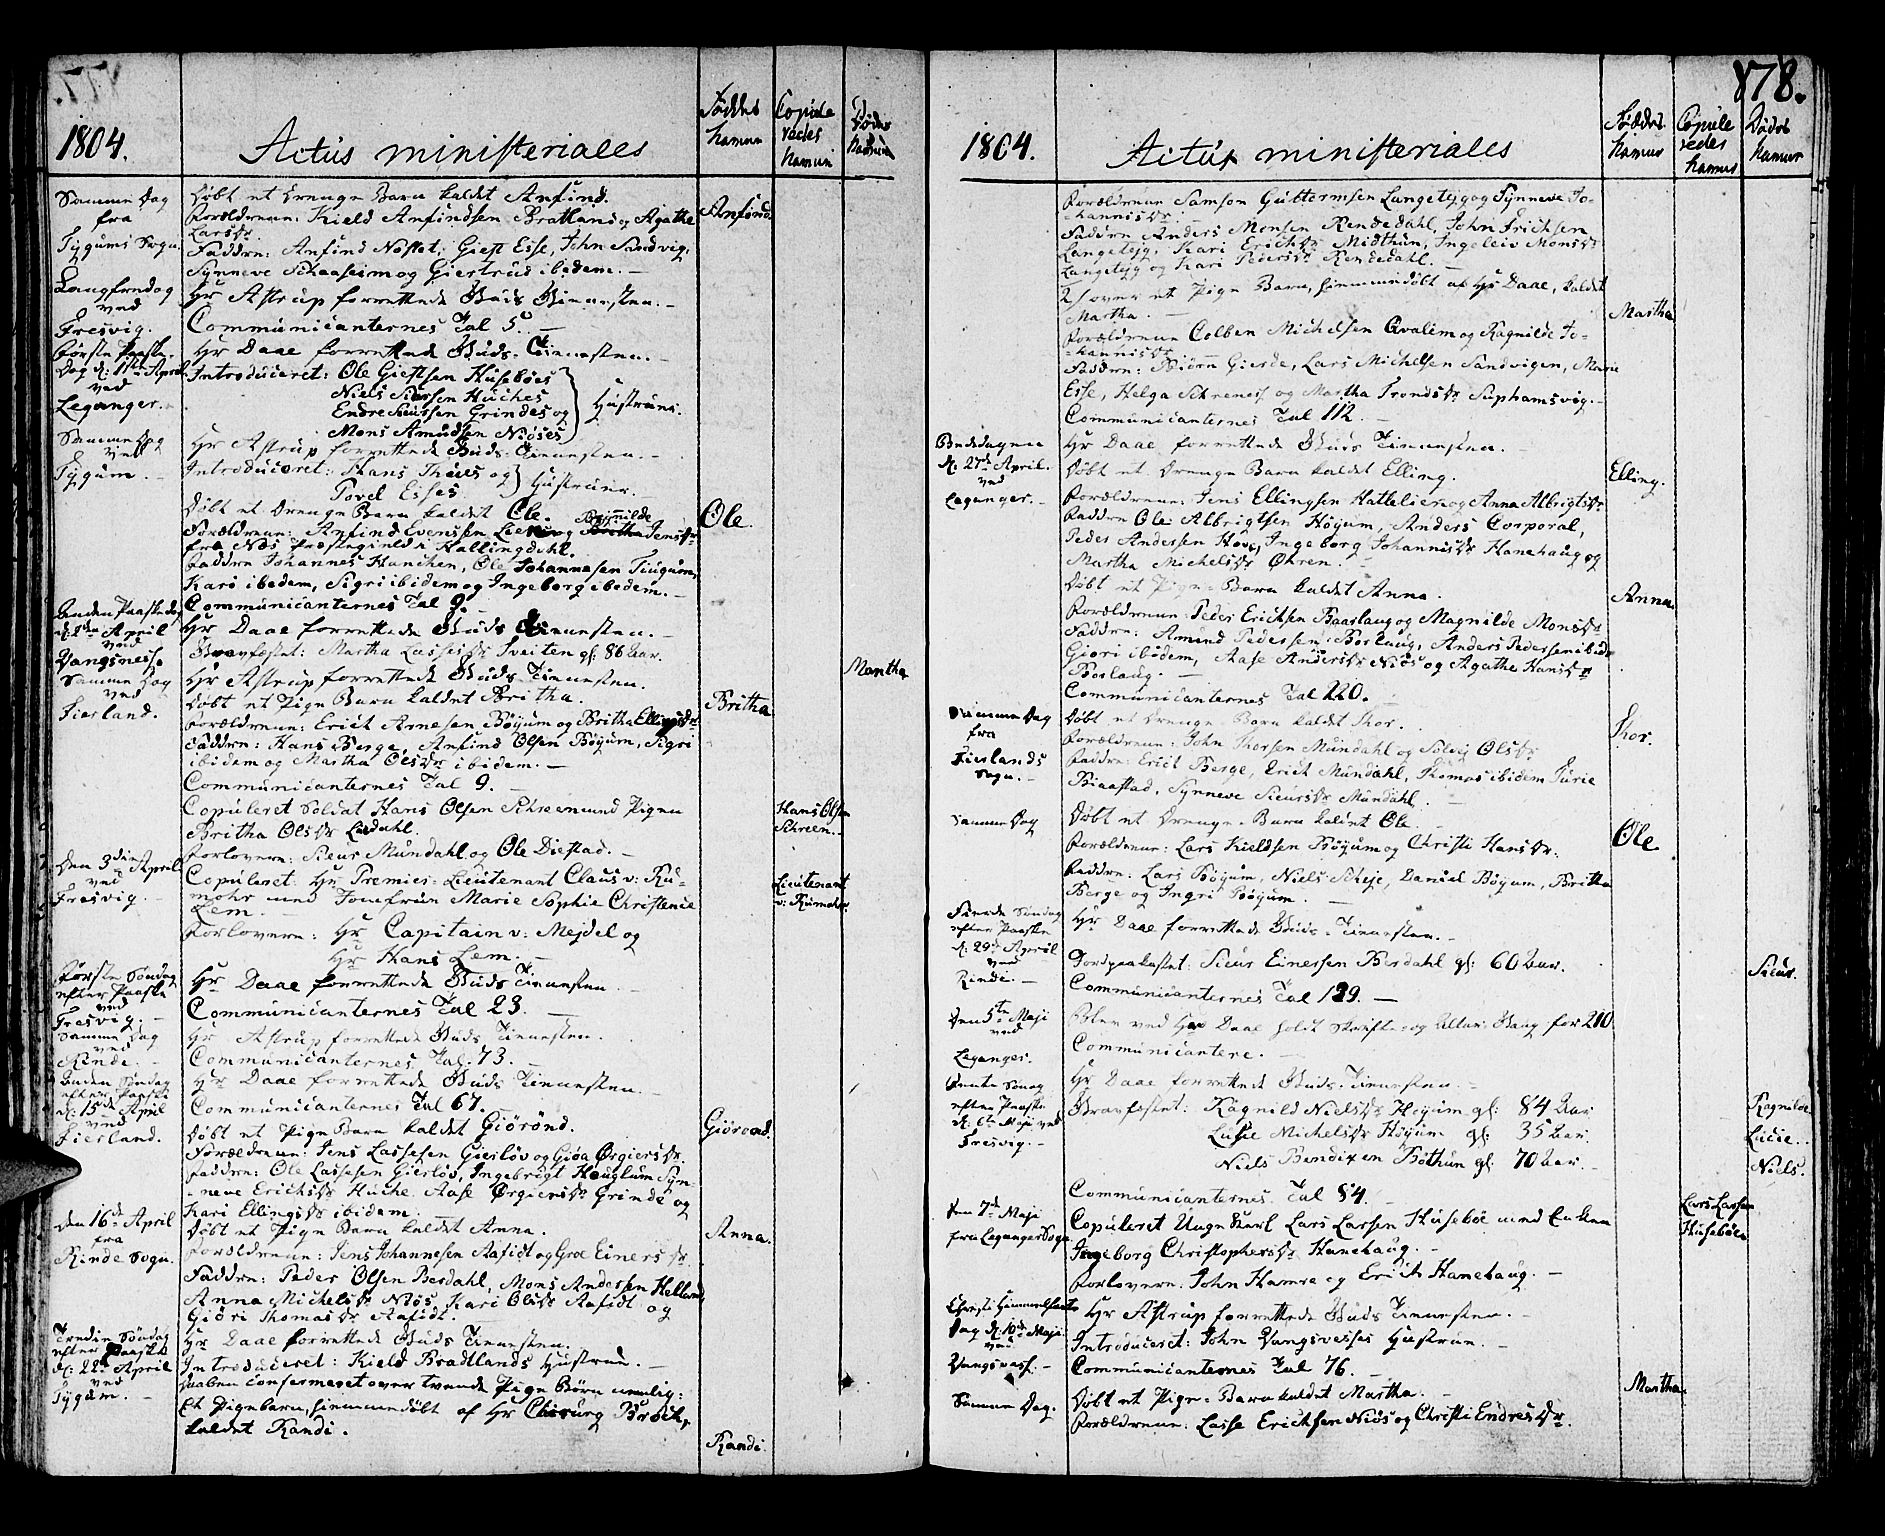 1804.
Actus ministeriales
Føddes Navnen
Copule redes Navnen
Dødes Navnen
Samme Dag fra Tygums Sogn.
Døbt et Drenge Barn kaldet Anfind.
Anfind.
Forældrene: Kield Anfindsen Bratland og Agathe
Larsdr
Faddre: Anfind Nøstet, Giest Esse, John Sandvig,
Synneve Schaaseim og Giertrud ibidem. -
Langfredag ved Fresvig.
Hr Astrup forrettede Guds Tienesten. -
Communicanternes Tal 5. -
Første Paaske-Dag d: 1ste April ved Leganger. -
Hr Daae forrettede Guds-Tienesten. -
Introduceret: Ole Giestsen Husebøes
Niels Siursen Huches
Endre Siursen Grindes og
Mons Amundsen Niøses
Hustruer.
Samme Dag ved Tygum. -
Hr Astrup forrettede Guds-Tienesten. -
Introduceret: Hans Thues og
Povel Esses
Hustruer. -
Døbt et Drenge Barn kaldet Ole.
Ole.
Forældrene: Anfind Evensen og Ragnilde Jensdr
fra Næs Præstegield i Hallingdahl.
Faddre Johannes Hanchen, Ole Johannesen Tiugum,
Kari ibidem, Sigri ibidem og Ingeborg ibedem. -
Communicanternes Tal 9. -
Anden Paaske dag d: 2den April ved Vangsness.
Hr Daae forrettede Guds Tienesten. -
Gravfæstet: Martha Lassesdr Tveiten gl: 86 Aar.
Martha
Samme Dag ved Fierland.
Hr Astrup forrettede Guds-Tienesten.
Døbt et Pige Barn kaldet Britha.
Britha
Forældrene: Erich Arnesen Bøyum og Britha Ellingsdr
Faddre: Hans Berge, Anfind Olsen Bøyum, Sigri
ibidem og Martha Olsdr ibidem. -
Communicanternes Tal 9. -
Copuleret Soldat Hans Olsen Schreen med Pigen
Hans Olsen Schreen. -
Britha Olsdr Lædahl.
Forlovere: Siur Mundahl og Ole Distad. -
Den 3die April ved Fresvig. -
Copuleret: Hr Premier-Lieutenant Claus v: Ru-
Lieutenant v: Rumohr.
mohr med Jomfrue Marie Sophie Christence
Lem. -
Forlovere: Hr Capitain v: Mejdel og
Hr Hans Lem. -
Første Søndag efter Paaske ved Fresvig. -
Hr Daae forrettede Guds Tienesten. -
Communicanternes Tal 23. -
Samme Dag ved Rinde. -
Hr Astrup forrettede Guds Tienesten. -
Communicanternes Tal. 73. -
Anden Søndag efter Paaske d: 15de April ved Fierland.
Hr Daae forrettede Guds-Tienesten. -
Communicanternes Tal 67. -
Døbt et Pige Barn kaldet Giørond.
Giørond.
Forældrene: Jens Lassesen Gierløv og Giøa Ørgiersdr.
Faddre: Ole Lassesen Gierløv, Ingebrigt Houglum, Syn-
neve Erichsdr Huche, Aase Ørgiersdr Grinde og
Kari Ellingsdr ibidem.
Den 16de April fra Rinde Sogn.
Døbt et Pige Barn kaldet Anna.
Anna.
Forældrene: Jens Johannesen Aafidt og Groe Einersdr.
Faddre: Peder Olsen Berdahl, Mons Andersen Helland,
Anna Michelsdr Niøs, Kari Olsdr Aafidt og
Giøri Thomasdr Aafidt. -
Tredie Søndag efter Paaske d: 22de April ved Tygum. -
Hr Daae forrettede Guds Tienesten.
Introduceret: Kield Bradtlands Hustrue. -
Daaben confermeret over tvende Pige Børn nemlig:
Et Pigebarn, hiemmedøbt af Hr Chirurg Broch,
kaldet Randi.
Randi.
878.
1804.
Actus ministeriales
Føddes Navner
Copule redes Navner
Dødes Navner
Forældrene Samson Guttormsen Langetejg og Synneve Jo-
hannisdr
Faddre Anders Monsen Rendedahl, John Erichsen
Langetejg, Kari Erichsdr Midthun, Ingeleiv Monsdr
Langetejg og Kari Pedersdr Rendedahl. -
2) over et Pige Barn, hiemmedøbt af Hr Daae, kaldet
Martha. -
Martha
Forældrene Colben Michelsen Qvalem og Ragnilde Jo-
hannisdr
Faddre: Biørn Gierde, Lars Michelsen Sandvigen, Marie
Esse, Helga Schrenes og Martha Trondsdr Suphamsvig. -
Communicanternes Tal 112. -
Bededagen d. 27de April. ved Leganger. -
Hr Daae forrettede Guds Tienesten. -
Døbt et Drenge Barn kaldet Elling.
Elling.
Forældrene: Jens Ellingsen Hatteleier og Anna Albrigtsdr
Faddre Ole Albrigtsen Høyum, Anders Corporal,
Peder Andersen Hove, Ingeborg Johannisdr Hanehaug og
Martha Michelsdr Øhren. -
Døbt et Pige-Barn kaldet Anna.
Anna.
Forældrene: Peder Erichsen Baaslaug og Magnilde Monsdr
Faddre: Amund Pedersen Borlaug, Anders Pedersen ibid:
Giøri ibidem, Aase Andersdr Niøs og Agathe Hansdr
Borlaug. -
Communicanternes Tal 220. -
Samme Dag fra Fierlands Sogn. -
Døbt et Drenge Barn kaldet Thor.
Thor.
Forældrene: John Thorsen Mundahl og Solvej Olsdr
Faddre: Erich Berge, Erich Mundahl, Thomas ibidem, Turie
Biaastad, Synneve Siursdr Mundahl. -
Samme Dag
Døbt et Drenge-Barn kaldet Ole. -
Ole.
Forældrene: Lars Kieldsen Bøyum og Christi Hansdr.
Faddre: Lars Bøyum, Niels Scheje, Daniel Bøyum, Britha
Berge og Ingri Bøyum. -
Fierde Søndag efter Paaske d: 29de April ved Rinde. -
Hr Daae forrettede Guds-Tienesten. -
Jordpaakastet: Siur Einersen Berdahl gl: 60 Aar.
Siur.
Communicanternes Tal 129. -
Den 5te Maji ved Leganger.
Polen ved Hr Daae holdt Skrifte- og Altar-Gang for 210
Communicantere. -
Femte Søndag efter Paaske d. 6te Maji ved Fresvig. -
Hr Daae forrettede Guds-Tienesten. -
Gravfæstet: Ragnild Nielsdr Høyum gl: 84 Aar
Ragnilde
Lucie Michelsdr Høyum gl: 35 Aar.
Lucie.
Niels Bendixen Bøthun gl: 70 Aar. -
Niels.
Communicanternes Tal 84. -
Den 7de Maji fra Leganger Sogn.
Copuleret Unge Karl Lars Larsen Husebøe med Enken
Lars Larsen Husebøen
Ingeborg Christophersdr Hanehaug. -
Forlovere: John Hamre og Erich Hanehaug. -
Christi Himmelfarts Dag d: 10de Maji ved Vangsness. -
Hr Astrup forrettede Guds Tienesten. -
Introduceret: John Vangsnesses Hustrue. -
Communicanternes Tal 76. -
Samme Dag.
Døbt et Pige-Barn kaldet Martha. -
Martha.
Forældrene: Lasse Erichsen Niøs og Christi Endresdr.